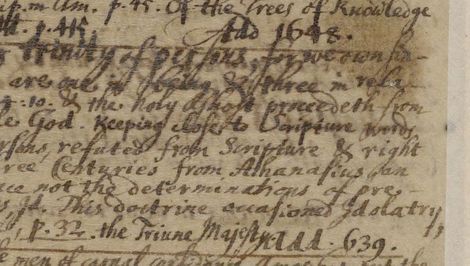 p. in Am. p. 45. Of the Trees of Knowledge
dd. p. 415 Add 1648.
trinity of persons, for we own
are one in being & three in rela-
4:10. & the holy Ghost proceedeth from
God. Keeping close to Scripture words,
refuted from Scripture & right
ree Centuries from Athanasius
not the determinations of pre-
This doctrine occasioned Idolatry,
p. 32. the Triune Majesty Add. 639.
men of carnal